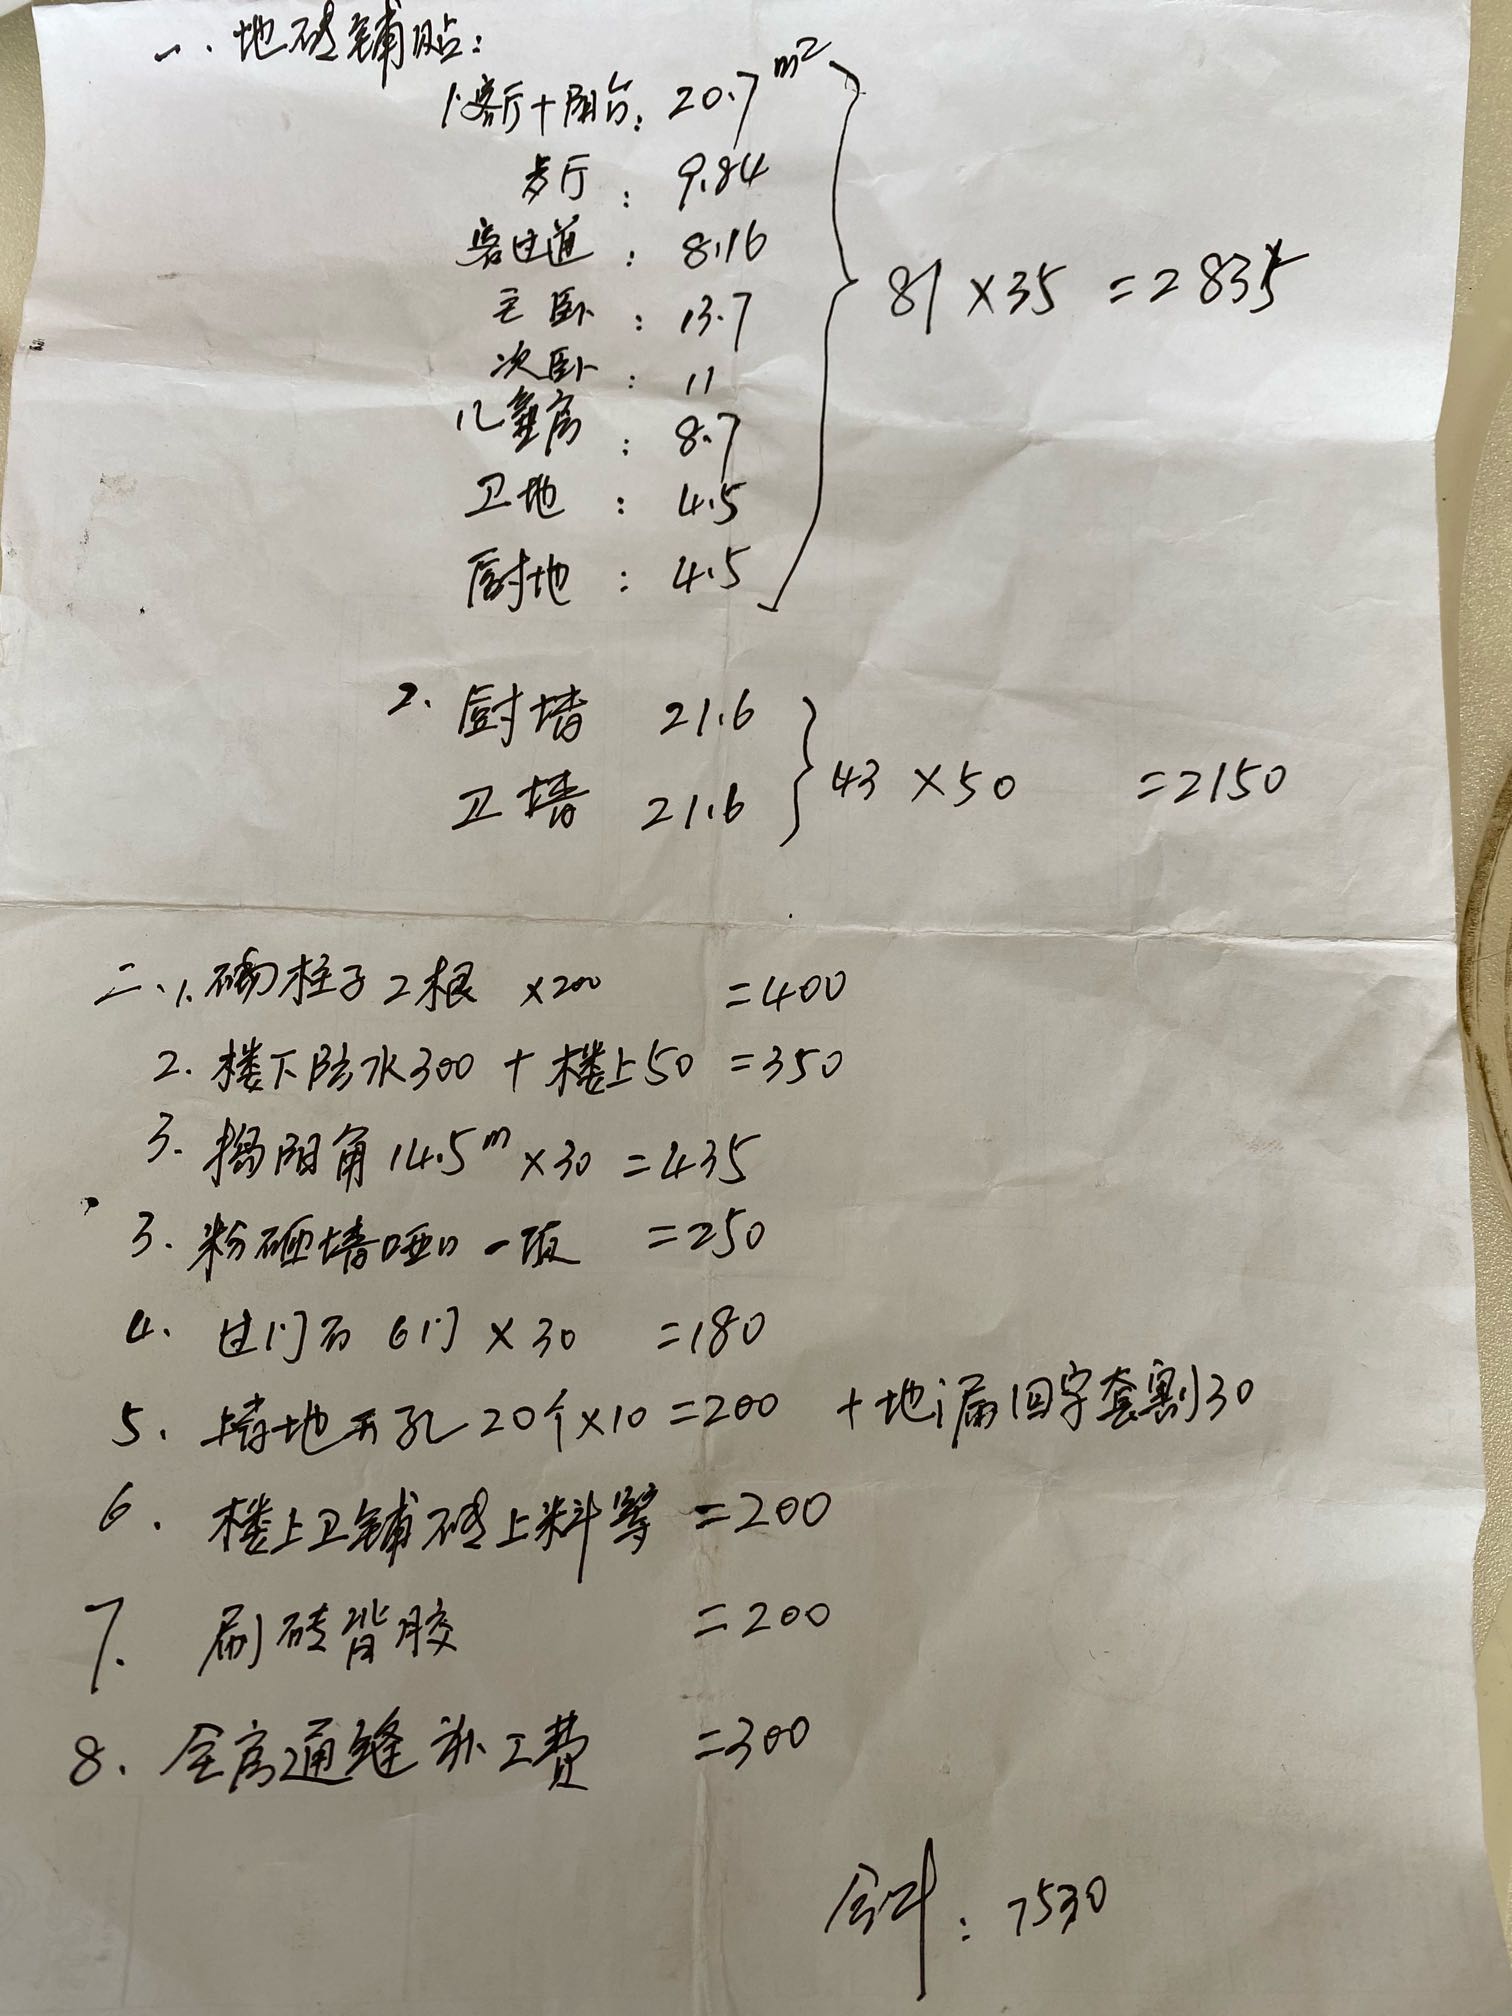 一、地砖铺贴：
1.客厅+阳台：20.7m²
歺厅：9.84
客过道：8.16
主卧：13.7
次卧：11
儿童房：8.7
卫地：4.5
厨地：4.5
81×35=2835
2.厨墙 21.6
卫墙 21.6
43×50 =2150
二、1.砌柱子2根 ×200 =400
2.楼下防水300+楼上50=350
3.阳角14.5m×30=435
3.粉砸墙哑口一项 =250
4.过门石6门×30 =180
5.墙地开孔20个×10=200 +地漏回字套割30
6.楼上卫铺砖上料等=200
7.刷砖背胶 =200
8.全房通缝补工费 =300
合计：7530